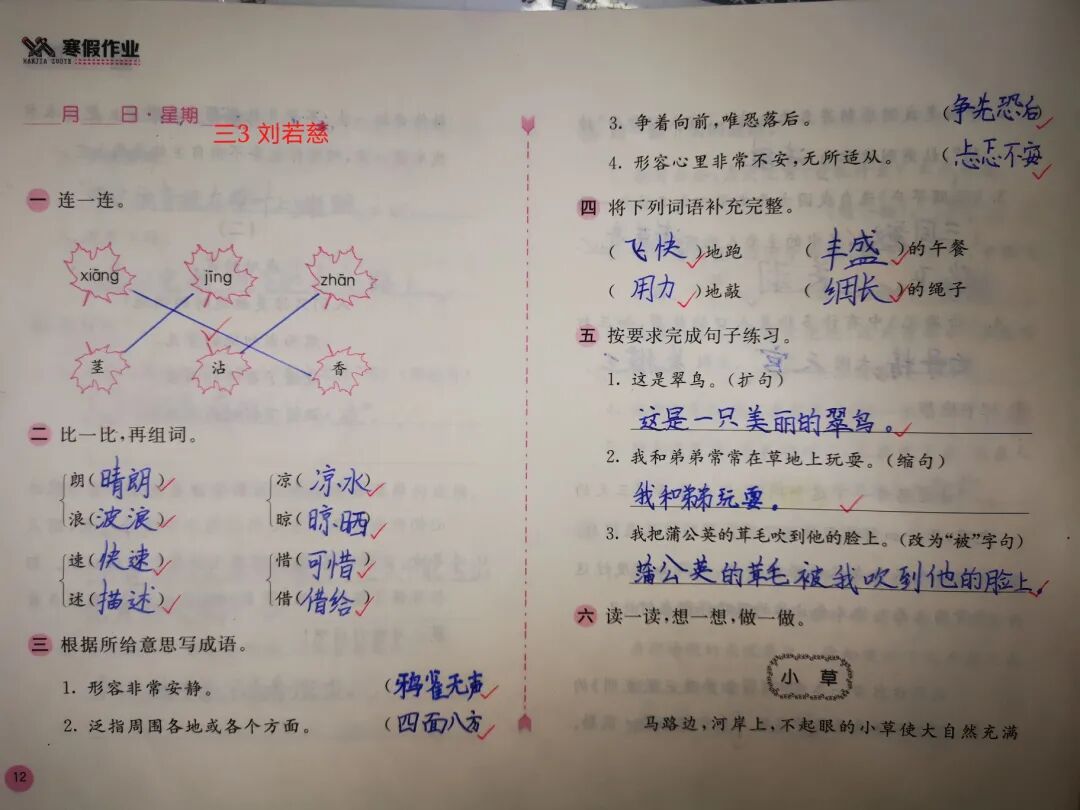 寒假作业
HANJIA ZUOYE
月 日·星期
三3 刘若慈
一 连一连。
xiāng jīng zhān
茎 沾 香
二 比一比,再组词。
朗(晴朗) 凉(凉水)
浪(波浪) 晾(晾晒)
速(快速) 惜(可惜)
述(描述) 借(借给)
三 根据所给意思写成语。
1. 形容非常安静。 (鸦雀无声)
2. 泛指周围各地或各个方面。 (四面八方)
12
3. 争着向前,唯恐落后。 (争先恐后)
4. 形容心里非常不安,无所适从。 (忐忑不安
四 将下列词语补充完整。
(飞快)地跑 (丰盛)的午餐
(用力)地敲 (细长)的绳子
五 按要求完成句子练习。
1. 这是翠鸟。(扩句)
这是一只美丽的翠鸟。
2. 我和弟弟常常在草地上玩耍。(缩句)
我和弟弟玩耍。
3. 我把蒲公英的茸毛吹到他的脸上。(改为“被”字句)
蒲公英的茸毛被我吹到他的脸上。
六 读一读,想一想,做一做。
小草
马路边,河岸上,不起眼的小草使大自然充满